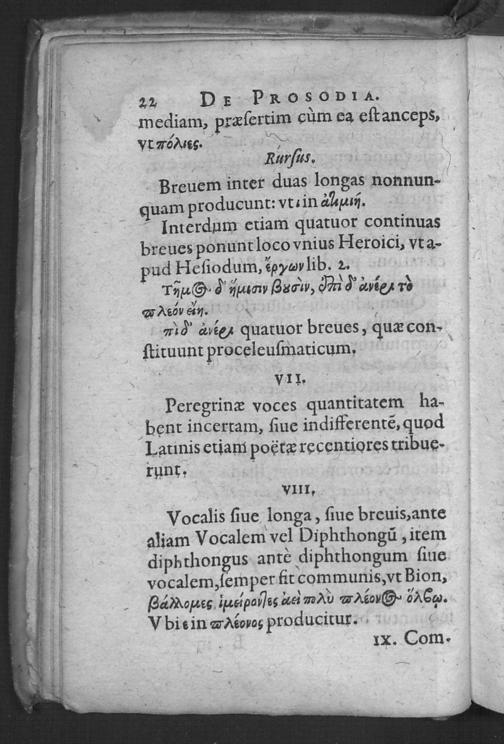 22 DE PROSODIA.
mediam, præsertim cùm ea est anceps,
vt πόλιες.
Rursus.
Breuem inter duas longas nonnun-
quam producunt: vt ι in ἀτιμιή.
Interdum etiam quatuor continuas
breues ponunt loco vnius Heroici, vt a-
pud Hesiodum, ἔργων lib. 2.
Τῆμος δ' ἥμισυ βουσὶν, ἐπὶ δ' ἀνέρι τὸ
πλεόν εἴη.
πὶ δ' ἀνέρι quatuor breues, quæ con-
stituunt proceleusmaticum.
VII.
Peregrinæ voces quantitatem ha-
bent incertam, siue indifferentē, quod
Latinis etiam poëtæ recentiores tribue-
runt.
VIII.
Vocalis siue longa, siue breuis, ante
aliam Vocalem vel Diphthongū, item
diphthongus antè diphthongum siue
vocalem, semper fit communis, vt Bion,
βάλλομες ἱμείροντες ἀεὶ πολὺ πλέονος ὄλβω.
Vbi ε in πλέονος producitur.
IX. Com-